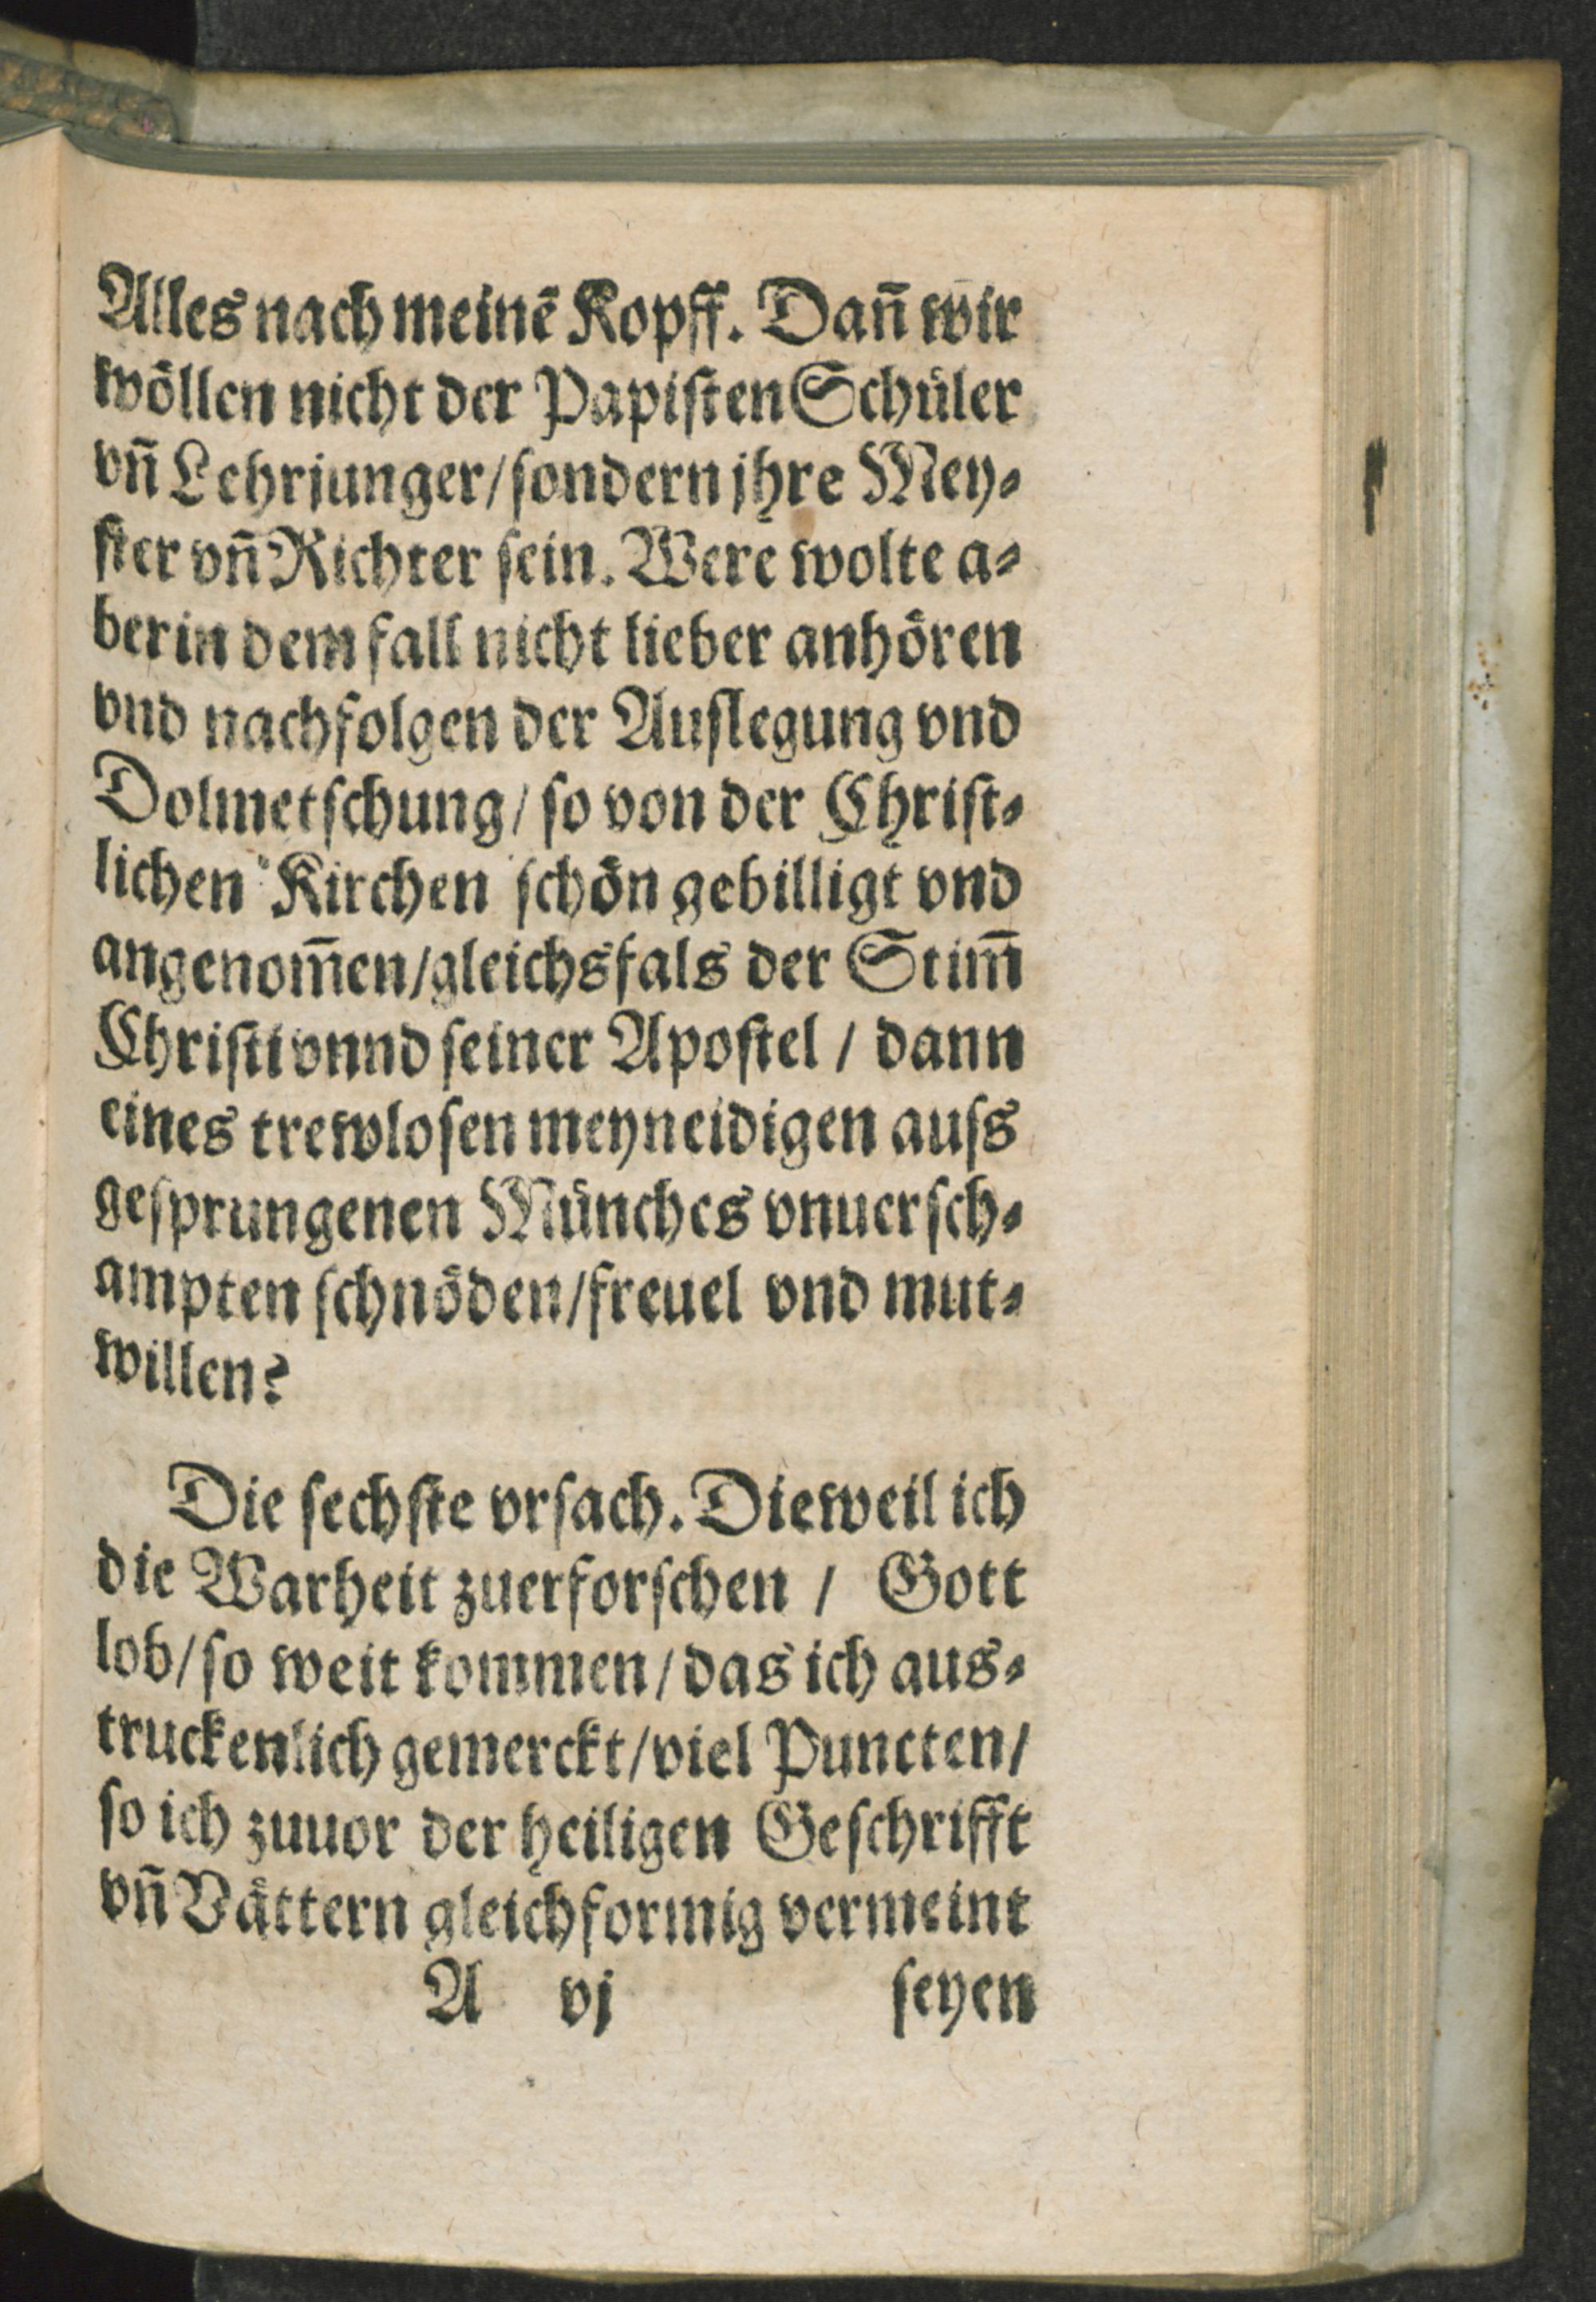 Alles nach meinẽ Kopff. Dañ wir
wöllen nicht der Papiſten Schüler
vñ Lehrjunger/ſondern jhre Mey⸗
ſter vñ Richter ſein. Were wolte a⸗
ber in dem fall nicht lieber anhören
vnd nachfolgen der Auſlegung vnd
Dolmetſchung/ ſo von der Chriſt⸗
lichen Kirchen ſchön gebilligt vnd
angenom̃en/gleichsfals der Stim̃
Chriſti vnnd ſeiner Apoſtel / dann
eines trewloſen meyneidigen auſs
geſprungenen Münches vnuerſch⸗
ampten ſchnöden/freuel vnd mut⸗
willen?
Die ſechſte vrſach. Dieweil ich
die Warheit zuerforſchen / Gott
lob/ſo weit kommen/das ich aus⸗
truckenlich gemerckt/viel Puncten/
ſo ich zuuor der heiligen Geſchrifft
vñ Vättern gleichformig vermeint
A vj ſeyen